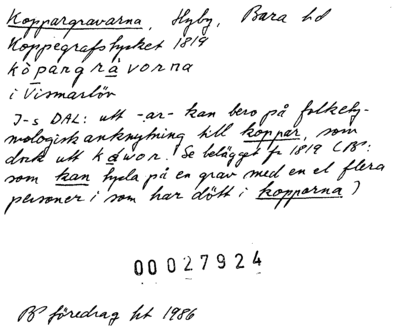 Koppargravarna, Hyby, Bara hd
Koppegrafstycket 1819
köpangråvorna
i Vismarlöv
J-s DAL: utt -ar- kan bero på folkety-
mologisk anknytning till koppar, som
dock utt kåwor. Se belägget fr 1819 (BP:
som kan tyda på en grav med en el flera
personer i som har dött i kopporna)
00027924
BP föredrag ht 1986